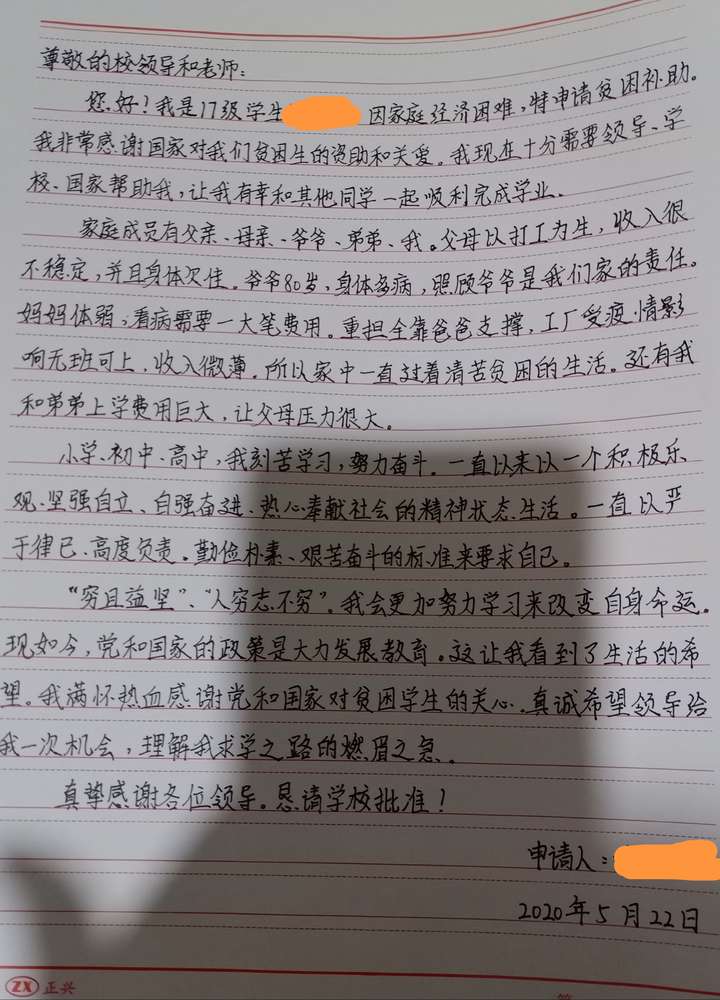 尊敬的校领导和老师:
您好!我是17级学生 因家庭经济困难,特申请贫困补助。
我非常感谢国家对我们贫困生的资助和关爱。我现在十分需要领导、学
校、国家帮助我,让我有幸和其他同学一起顺利完成学业、
家庭成员有父亲、母亲、爷爷、弟弟、我。父母以打工为生,收入很
不稳定,并且身体欠佳。爷爷80岁,身体多病,照顾爷爷是我们家的责任。
妈妈体弱,看病需要一大笔费用。重担全靠爸爸支撑,工厂受疫情影
响无班可上,收入微薄。所以家中一直过着清苦贫困的生活。还有我
和弟弟上学费用巨大,让父母压力很大。
小学、初中、高中,我刻苦学习,努力奋斗。一直以来以一个积极乐
观、坚强自立、自强奋进、热心奉献社会的精神状态生活。一直以严
于律己、高度负责。勤俭朴素、艰苦奋斗的标准来要求自己。
“穷且益坚”、“人穷志不穷”。我会更加努力学习来改变自身命运。
现如今,党和国家的政策是大力发展教育。这让我看到了生活的希
望。我满怀热血感谢党和国家对贫困学生的关心、真诚希望领导给
我一次机会,理解我求学之路的燃眉之急。
真挚感谢各位领导。恳请学校批准!
申请人:
2020年5月22日
ZX 正兴